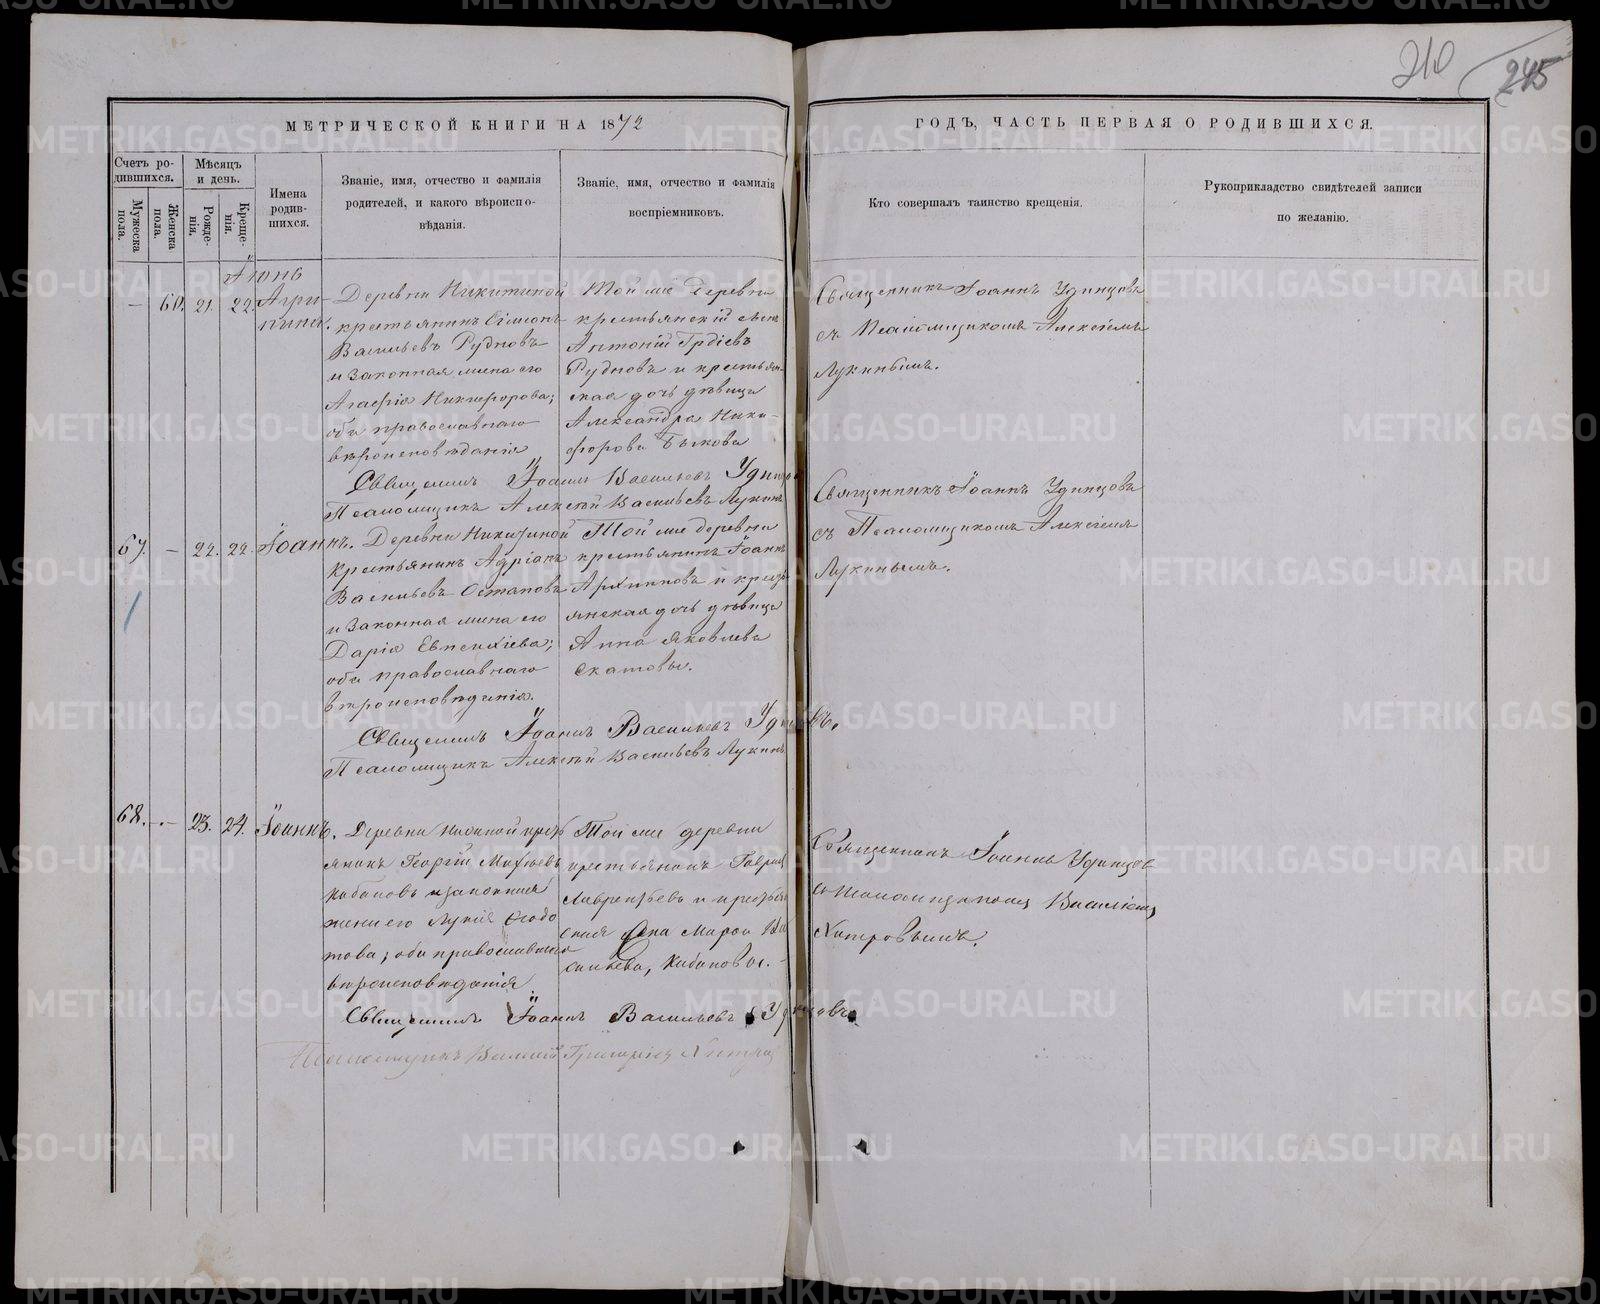 210
245
МЕТРИЧЕСКОЙ КНИГИ НА 1872
ГОДЪ, ЧАСТЬ ПЕРВАЯ О РОДИВШИХСЯ.
Счетъ ро-
дившихся.
Мужеска
пола.
Женска
пола.
Мѣсяцъ
и день.
Рожде-
нія.
Креще-
нія.
Имена
родив-
шихся.
Званіе, имя, отчество и фамилія
родителей, и какого вѣроиспо-
вѣданія.
Званіе, имя, отчество и фамилія
воспріемниковъ.
Кто совершалъ таинство крещенія.
Рукоприкладство свидѣтелей записи
по желанію.
Іюнь
— 60. 21. 22. Агри-
пина.
Деревни Никитиной
крестьянинъ Симеонъ
Васильевъ Рудновъ
и законная жена его
Агафія Никифорова;
оба православнаго
вѣроисповѣданія
Той же деревни
крестьянскій сынъ
Антоній
Рудновъ и крестьян-
ская дочь дѣвица
Александра Ники-
форова Быкова
Священникъ Іоаннъ Удинцовъ
съ Псаломщикомъ Алексіемъ
Лукинымъ.
Священникъ Іоаннъ Васильевъ
Псаломщикъ Алексѣй Васильевъ Лукинъ
67. — 22. 22. Іоаннъ.
Деревни Никитиной
крестьянинъ Адріанъ
Васильевъ Остановъ
и законная жена его
Дарія
оба православнаго
вѣроисповѣданія.
Той же деревни
крестьянинъ Іоаннъ
Архиповъ и крестья-
янская дочь дѣвица
Анна Яковлева
Скатовы.
Священникъ Іоаннъ Удинцовъ
съ Псаломщикомъ Алексіемъ
Лукинымъ.
Священникъ Іоаннъ Васильевъ
Псаломщикъ Алексѣй Васильевъ Лукинъ
68. — 23. 24. Іоаннъ.
Деревни крест
янинъ Георгій
Кабановъ и законная
жена его Лукія Ѳеодо
това; оба православнаго
вѣроисповѣданія
Той же деревни
крестьянинъ Гаврил
Лаврентьевъ и крестьян
ская жена Марѳа Ва
сильева, Кабановы.
Священникъ Іоаннъ Удинцовъ
съ Псаломщикомъ Василіемъ
Хитровымъ.
Священникъ Іоаннъ Васильевъ Удинцовъ
Псаломщикъ Василій Григоріевъ
METRIKI.GASO-URAL.RU